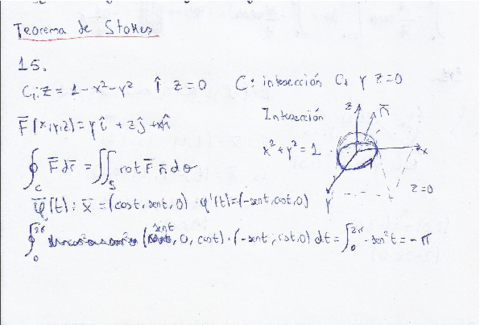 Teorema de Stokes
15.
C₁: z = 1 - x² - y² z = 0 C: intersección C₁ y z = 0
F̄(x,y,z) = yî + zĵ + xk̂ Intersección
x² + y² = 1
z n̄ x y z=0
∮_C F̄ dr̄ = ∬_S rot F̄ n̄ dσ
φ̄(t): x̄ = (cost, sent, 0) · φ'(t) = (-sent, cost, 0)
∮₀^2π (sent, 0, cost) · (-sent, cost, 0) dt = ∫₀^2π -sen²t = -π